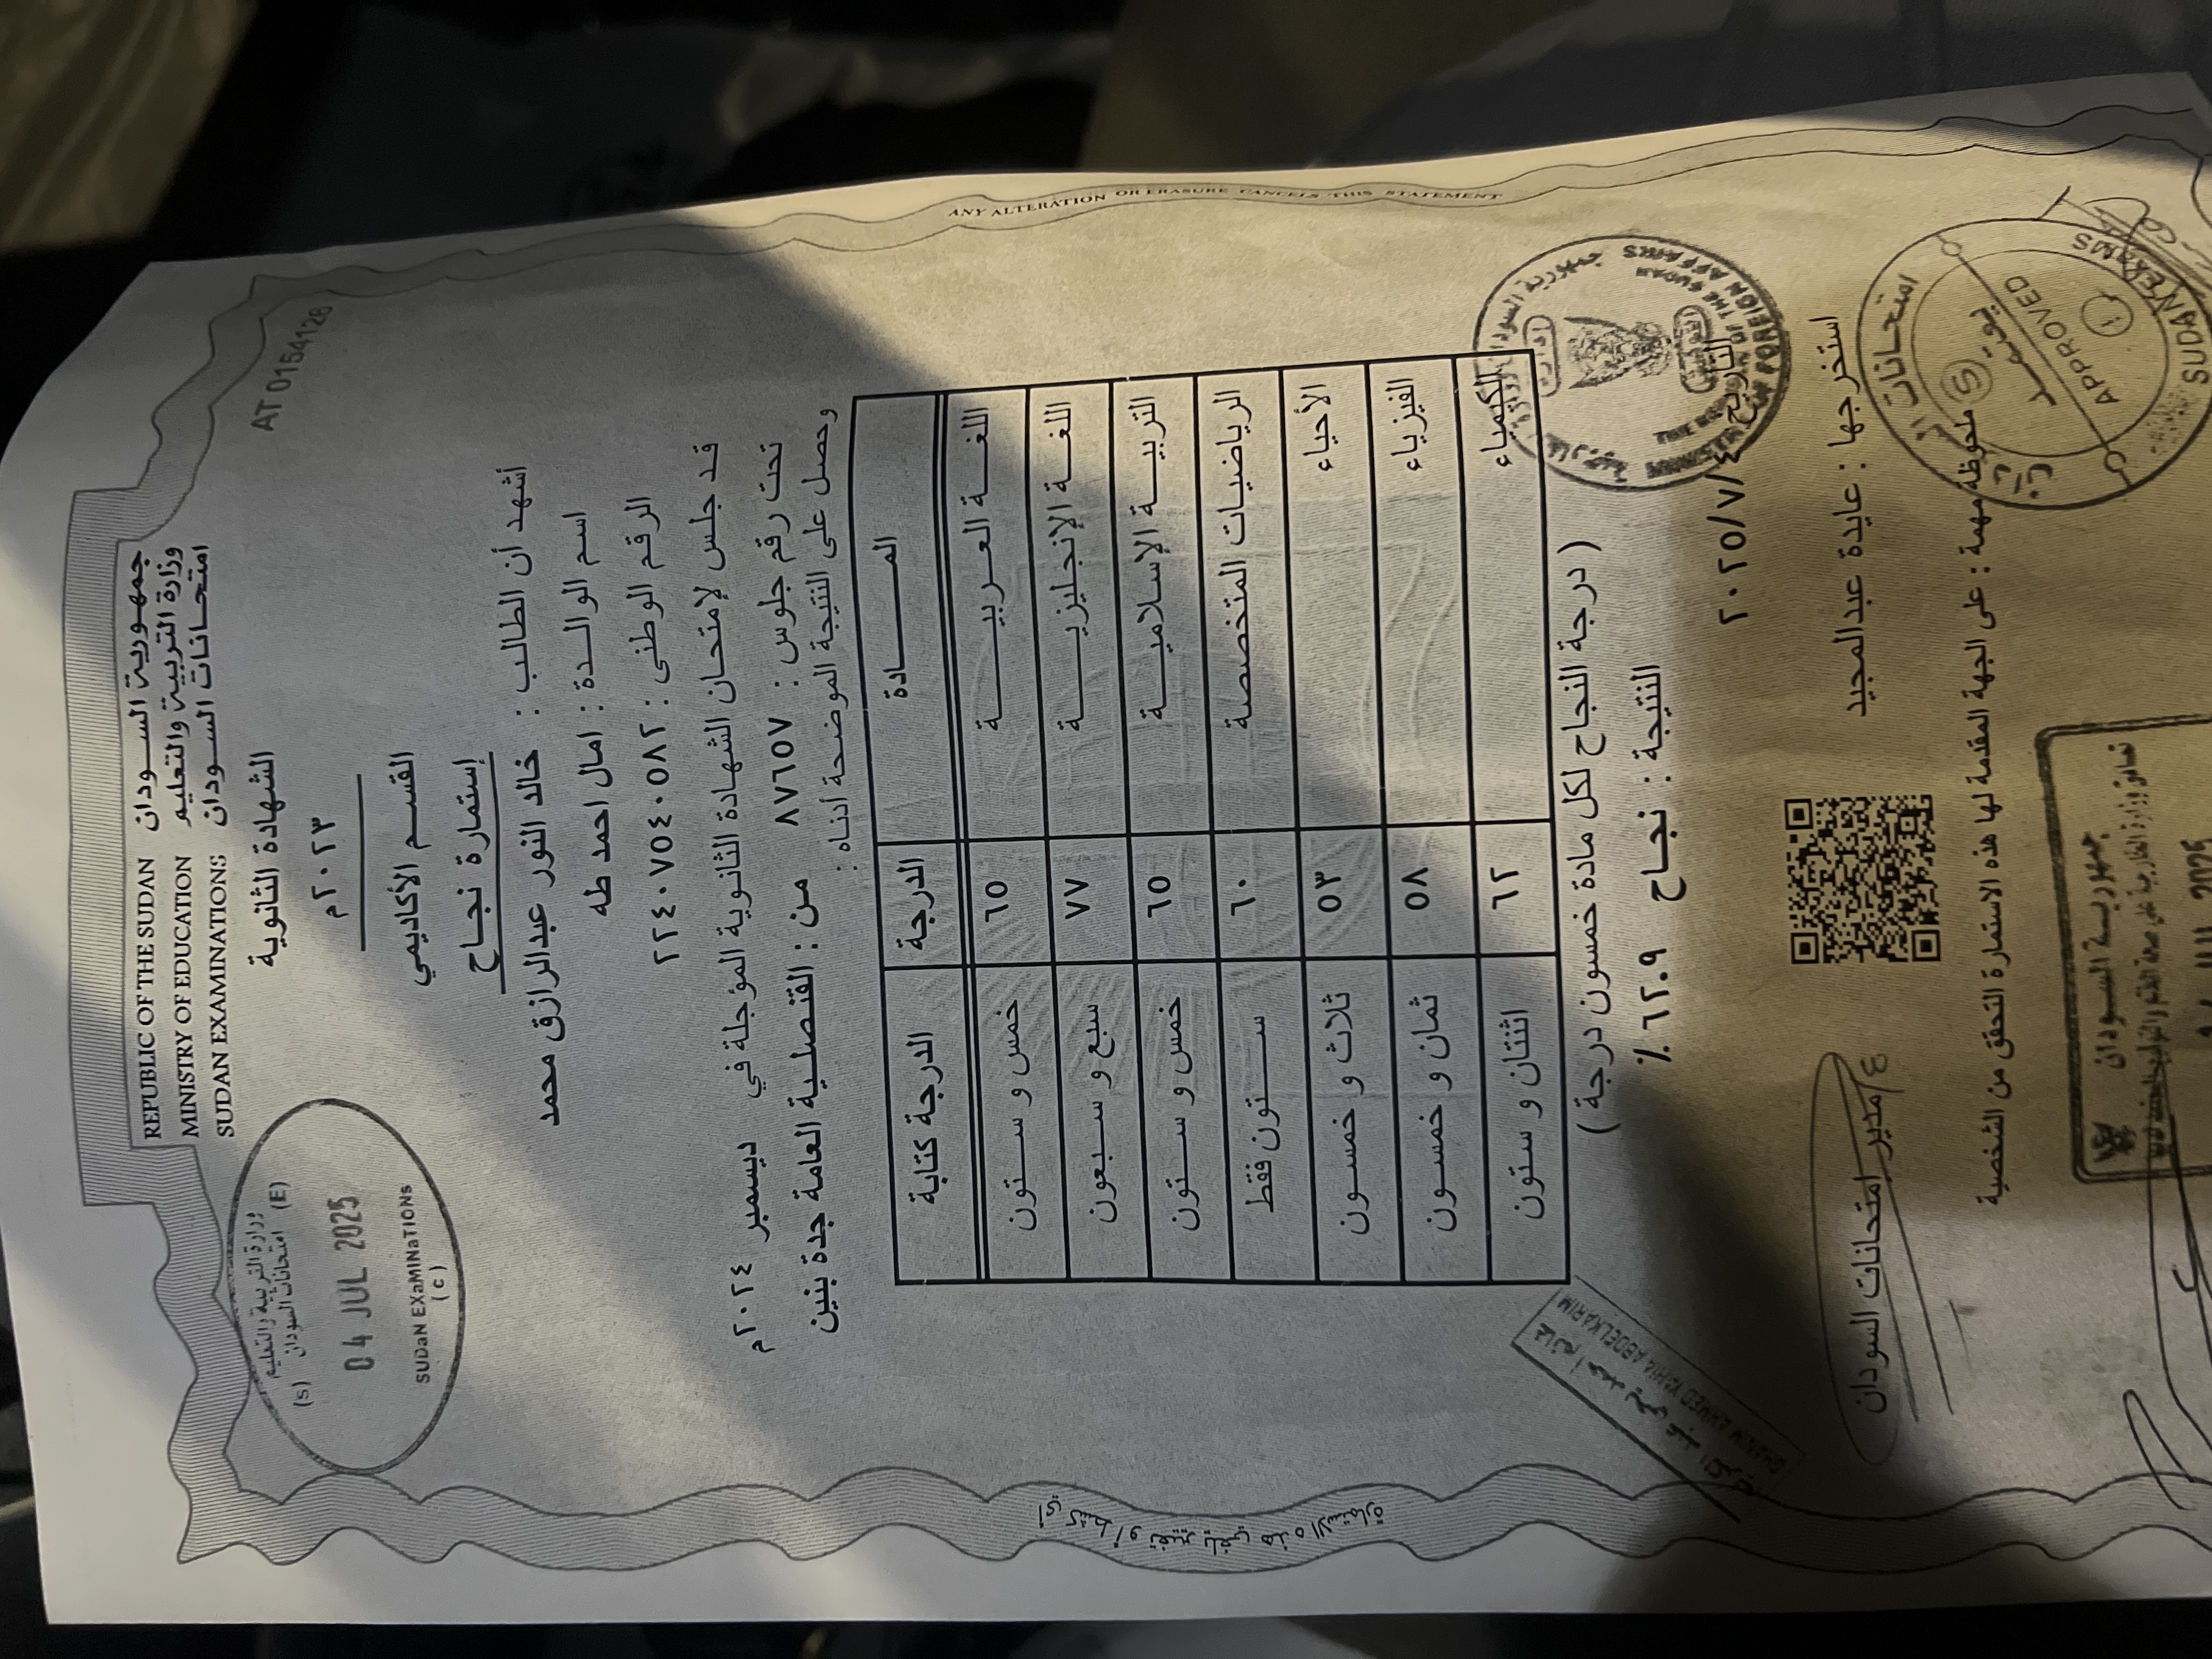 جمهورية السودان
وزارة التربية والتعليم
امتحانات السودان
REPUBLIC OF THE SUDAN
MINISTRY OF EDUCATION
SUDAN EXAMINATIONS
وزارة التربية والتعليم
امتحانات السودان (E)
(S)
04 JUL 2025
SUDaN EXaMINaTIONS
(C)
AT 0154126
الشهادة الثانوية
٢٠٢٣م
القسم الأكاديمي
إستمارة نجاح
أشهد أن الطالب : خالد النور عبدالرازق محمد
اسم الوالدة : امال احمد طه
الرقم الوطنى : ٢٢٤٠٧٥٤٠٥٨٢
قد جلس لإمتحان الشهادة الثانوية المؤجلة في ديسمبر ٢٠٢٤م
تحت رقم جلوس : ٨٧٦٥٧ من : القنصلية العامة جدة بنين
وحصل على النتيجة الموضحة أدناه :
المادة الدرجة الدرجة كتابة
اللغة العربية ٦٥ خمس و ستون
اللغة الإنجليزية ٧٧ سبع و سبعون
التربية الاسلامية ٦٥ خمس و ستون
الرياضيات المتخصصة ٦٠ ستون فقط
الأحياء ٥٣ ثلاث و خمسون
الفيزياء ٥٨ ثمان و خمسون
الكيمياء ٦٢ اثنتان و ستون
(درجة النجاح لكل مادة خمسون درجة)
النتيجة : نجاح ٦٢.٩ %
التاريخ ٢٠٢٥/٧/٤
استخرجها : عايدة عبدالمجيد
ع/مدير امتحانات السودان
ملحوظة مهمة : على الجهة المقدمة لها هذه الاستمارة التحقق من الشخصية
امتحانات
يعتمد
APPROVED
SUDAN EXAMS
FOREIGN AFFAIRS
AHMED YAHIA ABDELKARIM
جمهورية السودان
2025
ANY ALTERATION OR ERASURE CANCELS THIS STATEMENT
أي كشط أو تغيير يلغي هذه الاستمارة